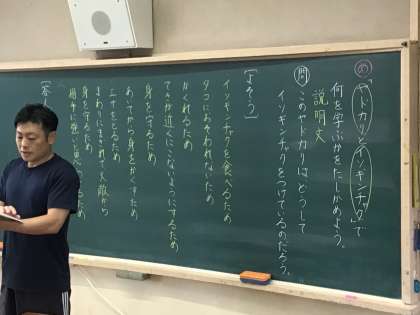 め「ヤドカリとイソギンチャク」で
何を学ぶかをたしかめよう。
説明文
問 このヤドカリはどうして
イソギンチャクをつけているのだろう。
［よそう］
イソギンチャクを食べるため
タコにおそわれないため
かくれるため
てきが近くにこないようにするため
身を守るため
あいつから身をかくすため
エサをとるため
まわりにまぎれて大敵から
身を守るため
相手に強いと思
ため